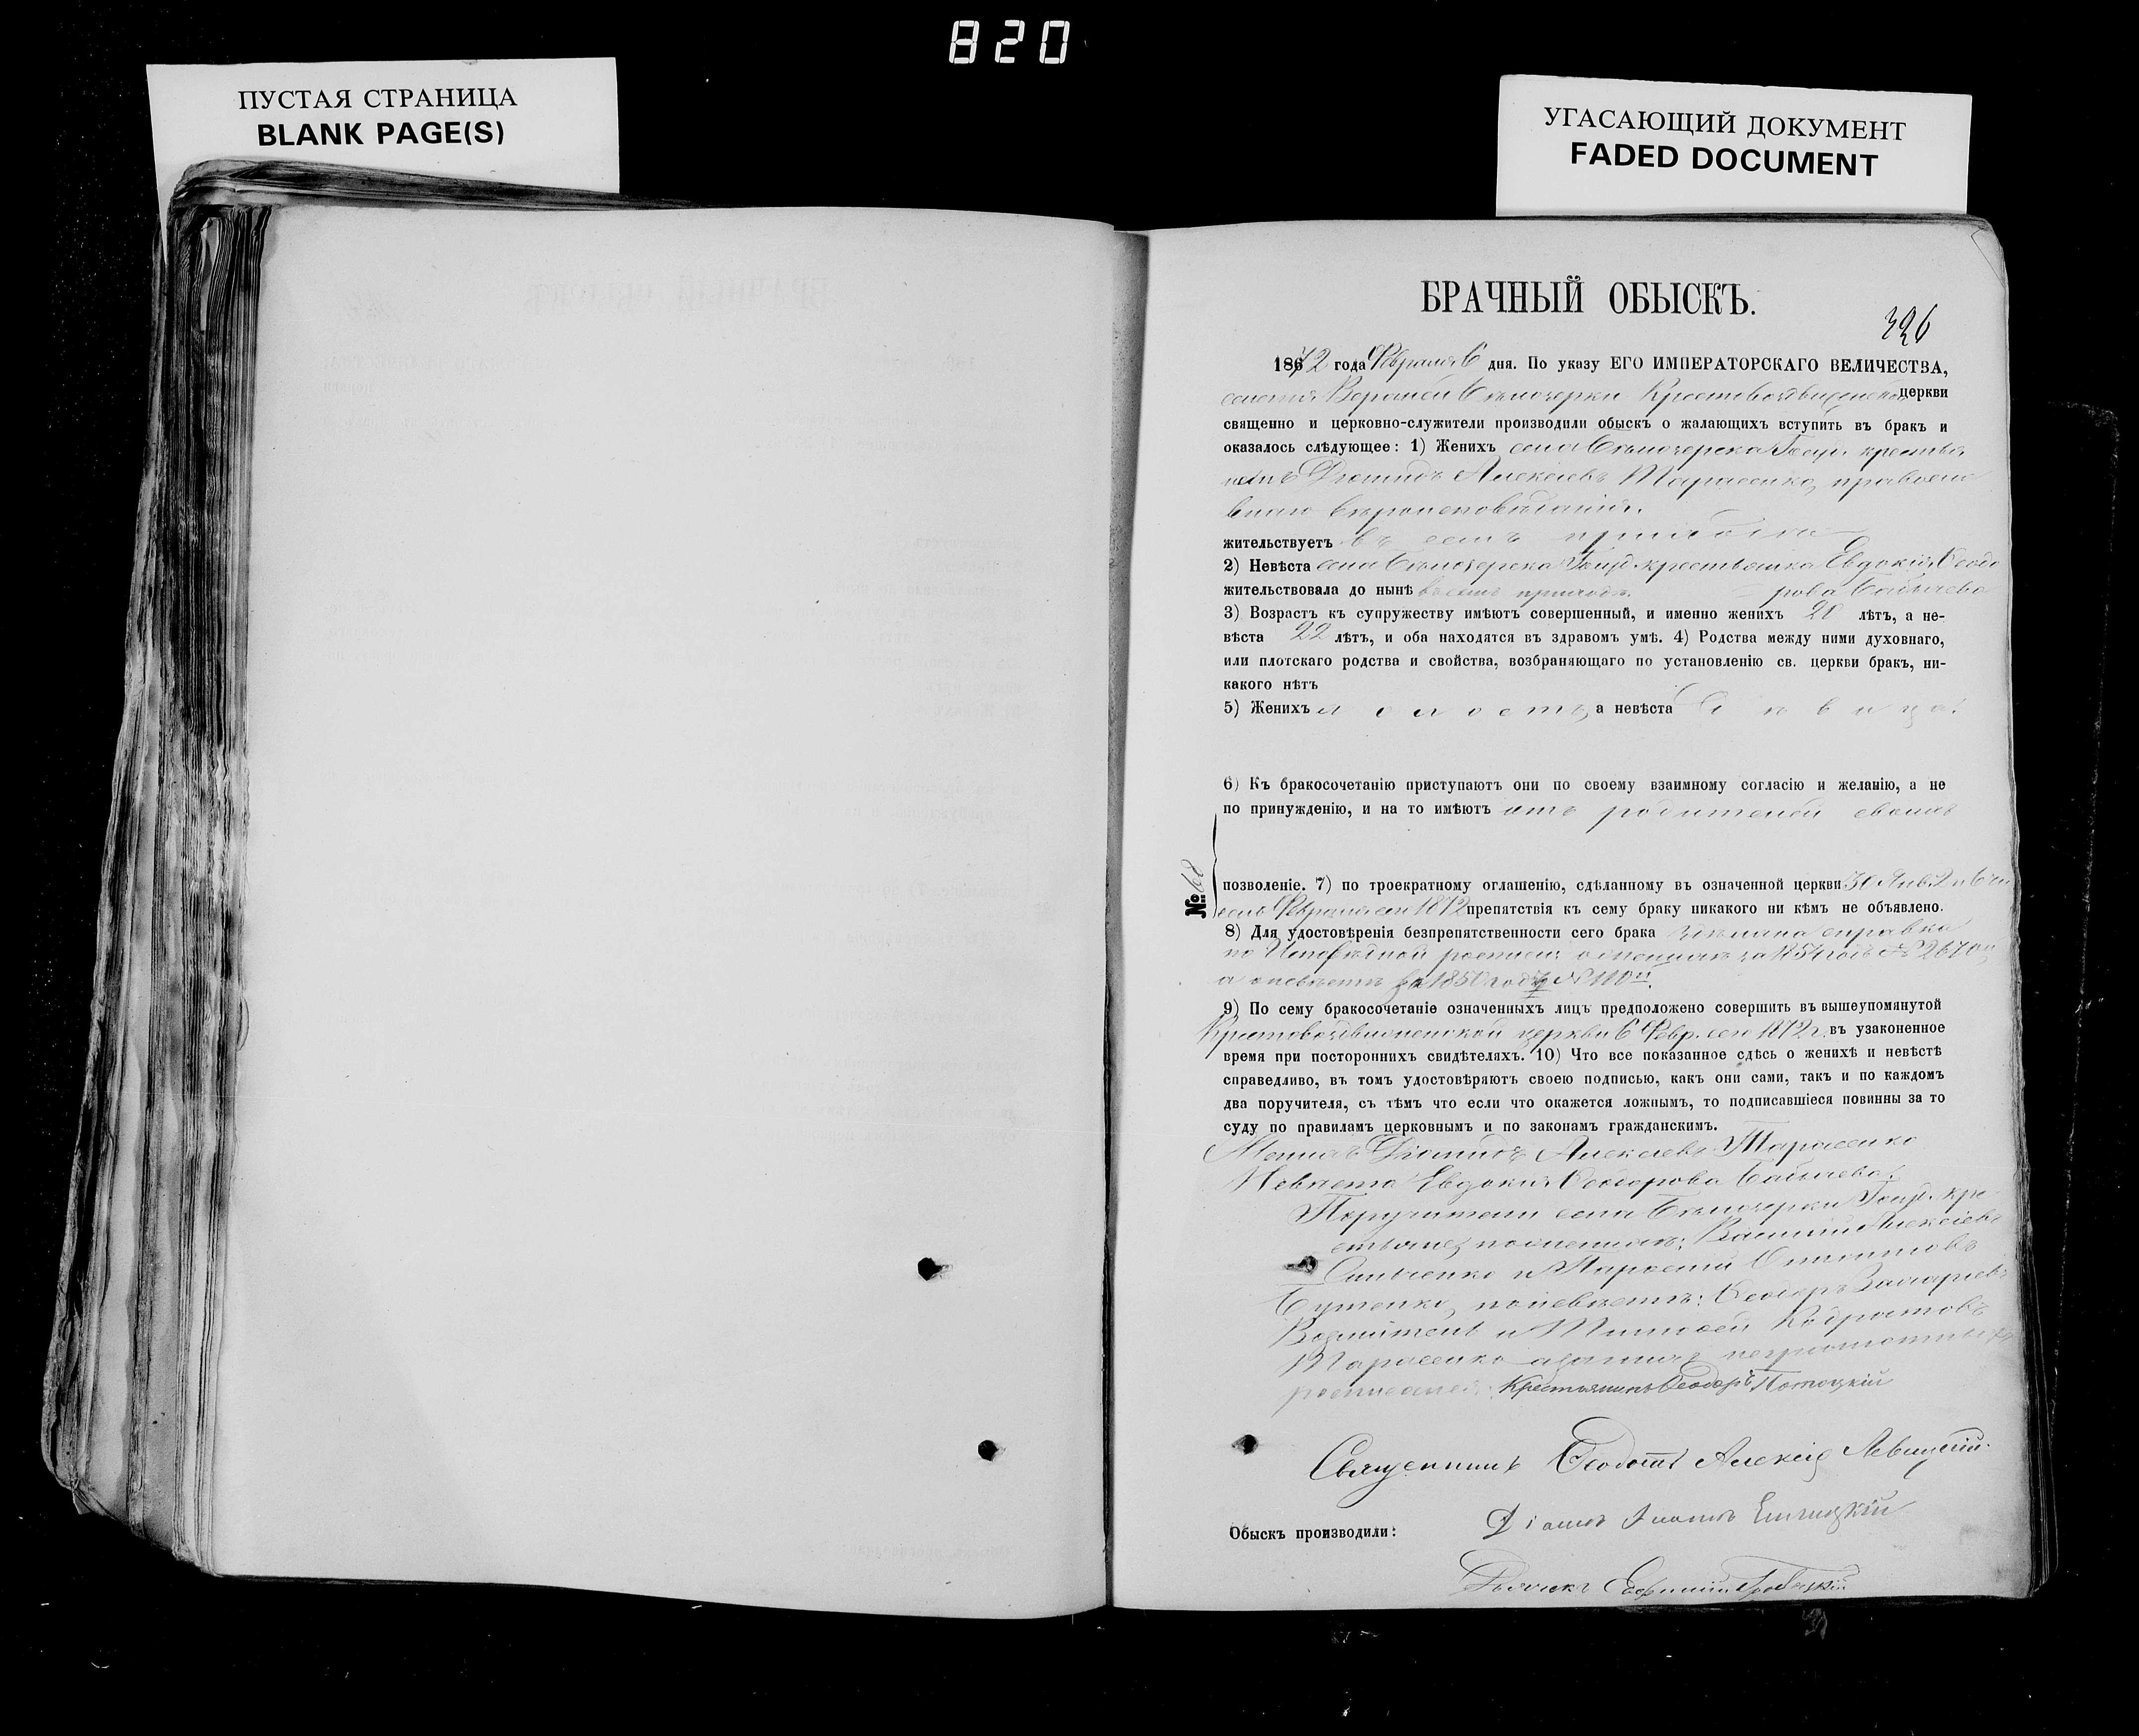 820
ПУСТАЯ СТРАНИЦА
BLANK PAGE(S)
УГАСАЮЩИЙ ДОКУМЕНТ
FADED DOCUMENT
БРАЧНЫЙ ОБЫСКЪ.
326
1872 года Февраля 6 дня. По указу ЕГО ИМПЕРАТОРСКАГО ВЕЛИЧЕСТВА,
церкви
священно и церковно-служители производили обыскъ о жалающихъ вступить въ бракъ и
оказалось слѣдующее: 1) Женихъ села Бѣлозерска Госуд. крестья
нинъ Діомидъ Алексіевъ Тарасенко, православ
внаго вѣроисповѣданія.
жительствуетъ въ семъ приходѣ
2) Невѣста села Бѣлозерска Госуд. крестьянка Евдокія Ѳеодо
жительствовала до нынѣ въ семъ приходѣ. рова
3) Возрастъ къ супружеству имѣютъ совершенный, и именно женихъ 20 лѣтъ, а не-
вѣста 22 лѣтъ, и оба находятся въ здравомъ умѣ. 4) Родства между ними духовнаго,
или плотскаго родства и свойства, возбраняющаго по установленію св. церкви бракъ, ни-
какого нѣтъ
5) Женихъ холостъ, а невѣста дѣвица.
6) Къ бракосочетанію приступаютъ они по своему взаимному согласію и желанію, а не
по принужденію, и на то имѣютъ отъ родителей своихъ
позволеніе. 7) по троекратному оглашенію, сдѣланному въ означенной церкви 30 Янв. 2 и 6 чи
№ 68
селъ Февраля сего 1872 препятствія къ сему браку никакого ни кѣмъ не объявлено.
8) Для удостовѣренія безпрепятственности сего брака учинена справка
по Исповѣдной росписи: о женихѣ за 1854 годъ №
а о невѣстѣ за 1850 годъ № 110
9) По сему бракосочетаніе означенныхъ лицъ предположено совершить въ вышеупомянутой
Крестовоздвиженской церкви 6 Февр. сего 1872 г. въ узаконенное
время при постороннихъ свидѣтеляхъ. 10) Что все показанное сдѣсь о женихѣ и невѣстѣ
справедливо, въ томъ удостовѣряютъ своею подписью, какъ они сами, такъ и по каждомъ
два поручителя, съ тѣмъ что если что окажется ложнымъ, то подписавшіеся повинны за то
суду по правиламъ церковнымъ и по законамъ гражданскимъ.
Женихъ Діомидъ Алексіевъ Тарасенко
Невѣста Евдокія Ѳеодорова
Поручители села Бѣлозерки Госуд. кре
стьяне, по женихѣ: Василій Алексіевъ
и
Бутенко, по невѣстѣ: Ѳеодоръ Захаріевъ
и Тимофей
Тарасенко а за нихъ неграмотныхъ
росписался: Крестьянинъ Ѳеодоръ Потоцкій
Священникъ Ѳеодотъ Алексіевъ Левицкій.
Обыскъ производили:
Дьячекъ Евфимій